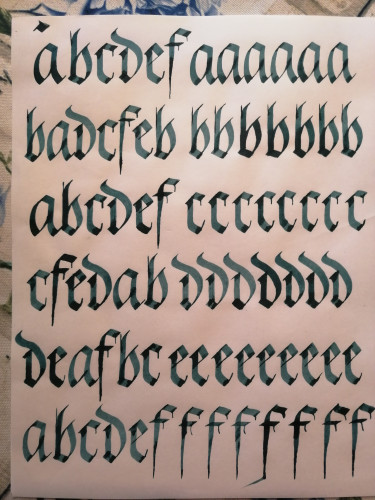 abcdef aaaaaa
badcfeb bbbbbbb
abcdef cccccccc
cfedab ddddddd
deafbc eeeeeeeee
abcdef fffffff